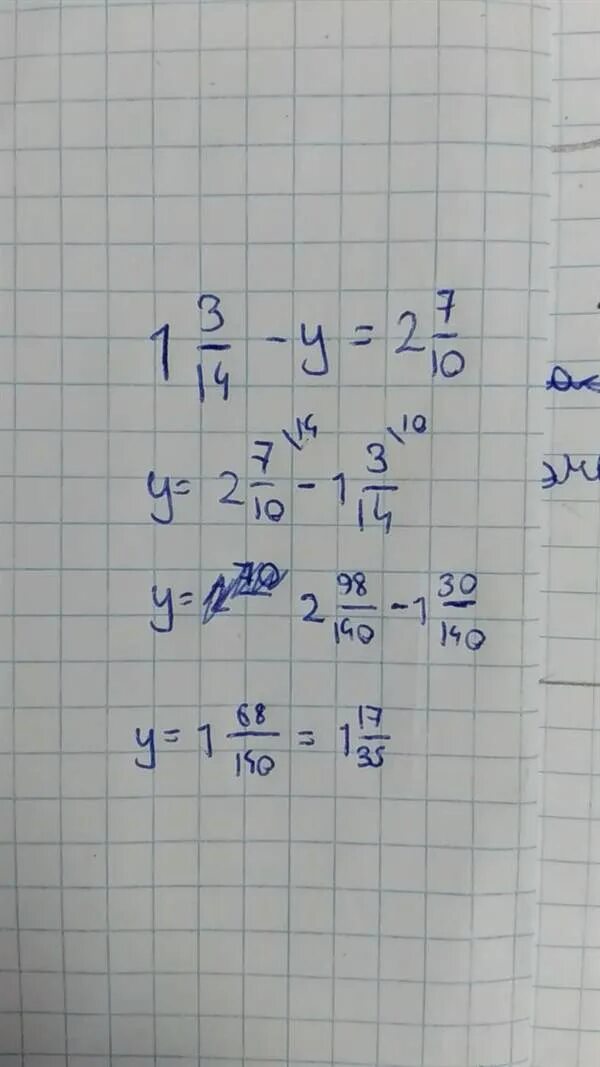 1 3/14 - y = 2 7/10
y = 2 7/10 \14 - 1 3/14 \10
y = 2 98/140 - 1 30/140
y = 1 68/140 = 1 17/35